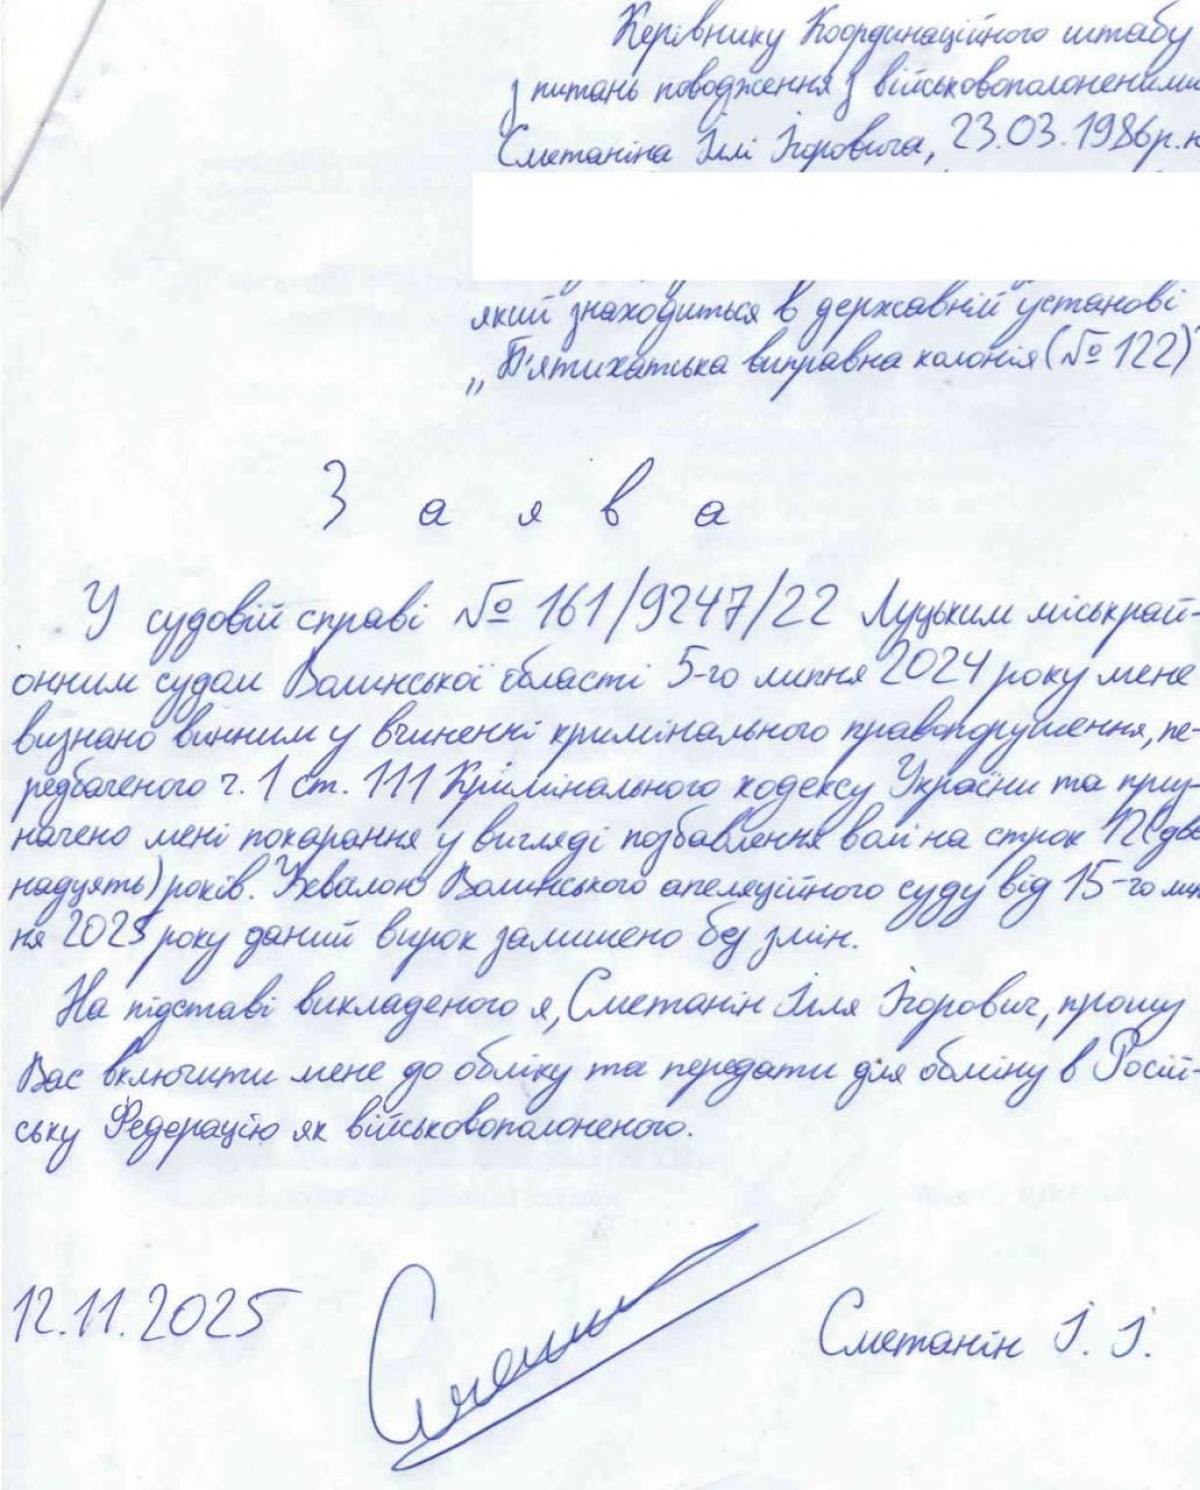 Керівнику Координаційного штабу
з питань поводження з військовополоненими
Сметаніна Іллі Ігоровича, 23.03.1986р.н
який знаходиться в державній установі
„П'ятихатська виправна колонія (№ 122)"
Заява
У судовій справі № 161/9247/22 Луцьким міськрай-
онним судом Волинської області 5-го липня 2024 року мене
визнано винним у вчиненні кримінального правопорушення, пе-
редбаченого ч. 1 ст. 111 Крімінального кодексу України та приз-
начено мені покарання у вигляді позбавлення волі на строк 12 (два
надцять) років. Ухвалою Волинського апеляційного суду від 15-го лип
ня 2025 року даний вирок залишено без змін.
На підставі викладеного я, Сметанін Ілля Ігорович, прошу
Вас включити мене до обліку та передати для обміну в Росій-
ську Федерацію як військовополоненого.
12.11.2025
Сметанін І. І.